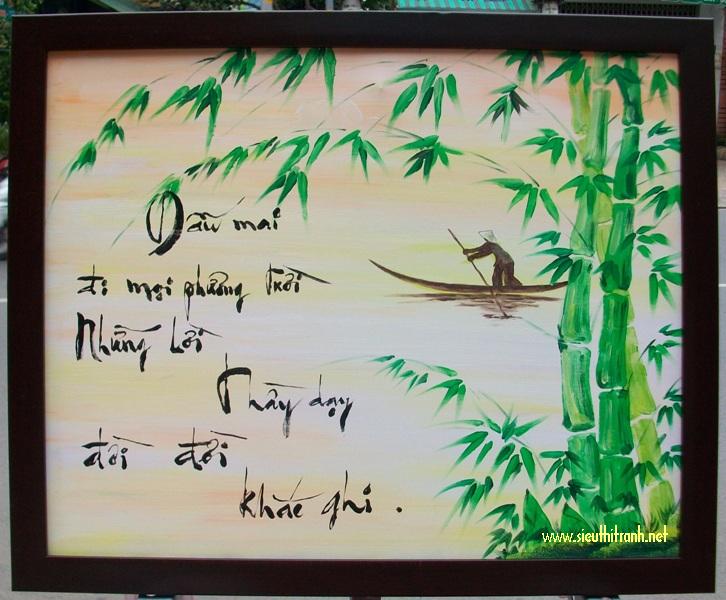 Dẫu mai
đi mọi phương trời
Những lời
Thầy dạy
đời đời
khắc ghi.
www.sieuthitranh.net